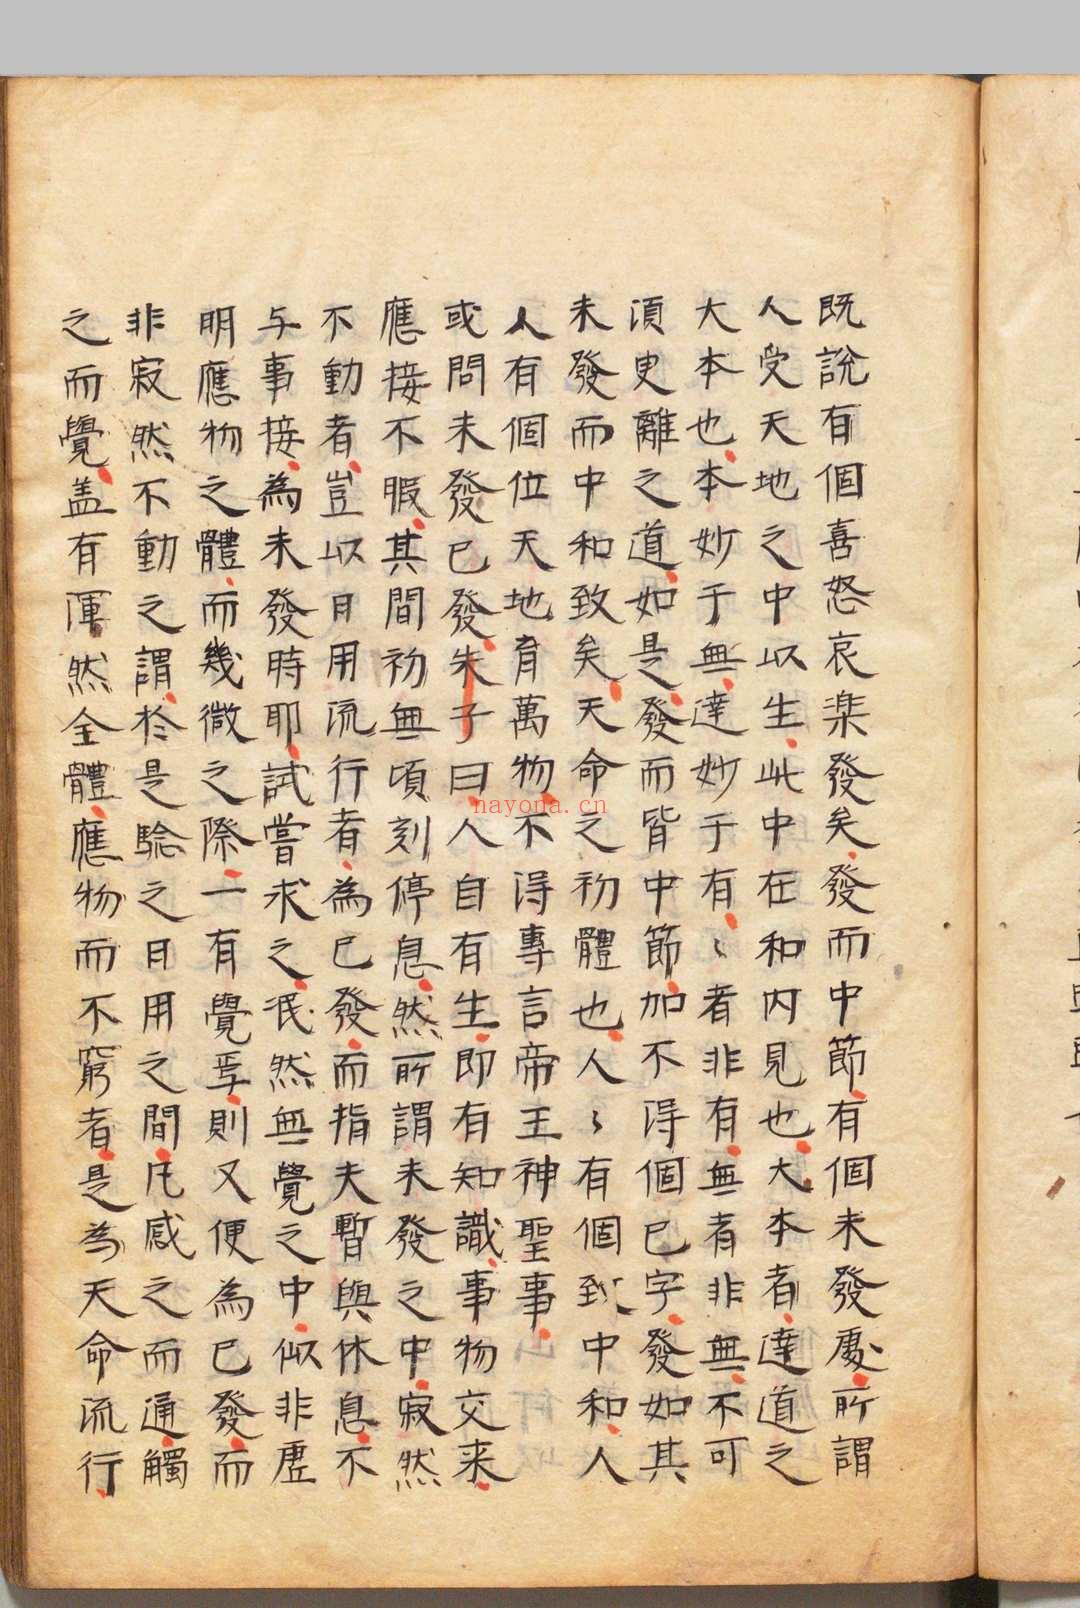 既說有個喜怒哀楽發矣發而中節有個未發處所謂
人受天地之中以生此中在和内見也大本者達道之
大本也本妙于無達妙于有〻者非有無者非無不可
須更離之道如是發而皆中節加不淂個已字發如其
未發而中和致矣天命之初體也人〻有個致中和人
人有個位天地育萬物不淂專言帝王神聖事
或問未發已發朱子曰人自有生即有知識事物交来
應接不暇其間初無頃刻停息然所謂未發之中寂然
不動者豈以日用流行者為已發而指夫暫與休息不
与事接為未發時耶試嘗求之泯然無覺之中似非虛
明應物之體而幾微之際一有覺焉則又便為已發而
非寂然不動之謂於是驗之日用之間凡感之而通觸
之而覺盖有渾然全體應物而不窮者是為天命流行
nayona.cn